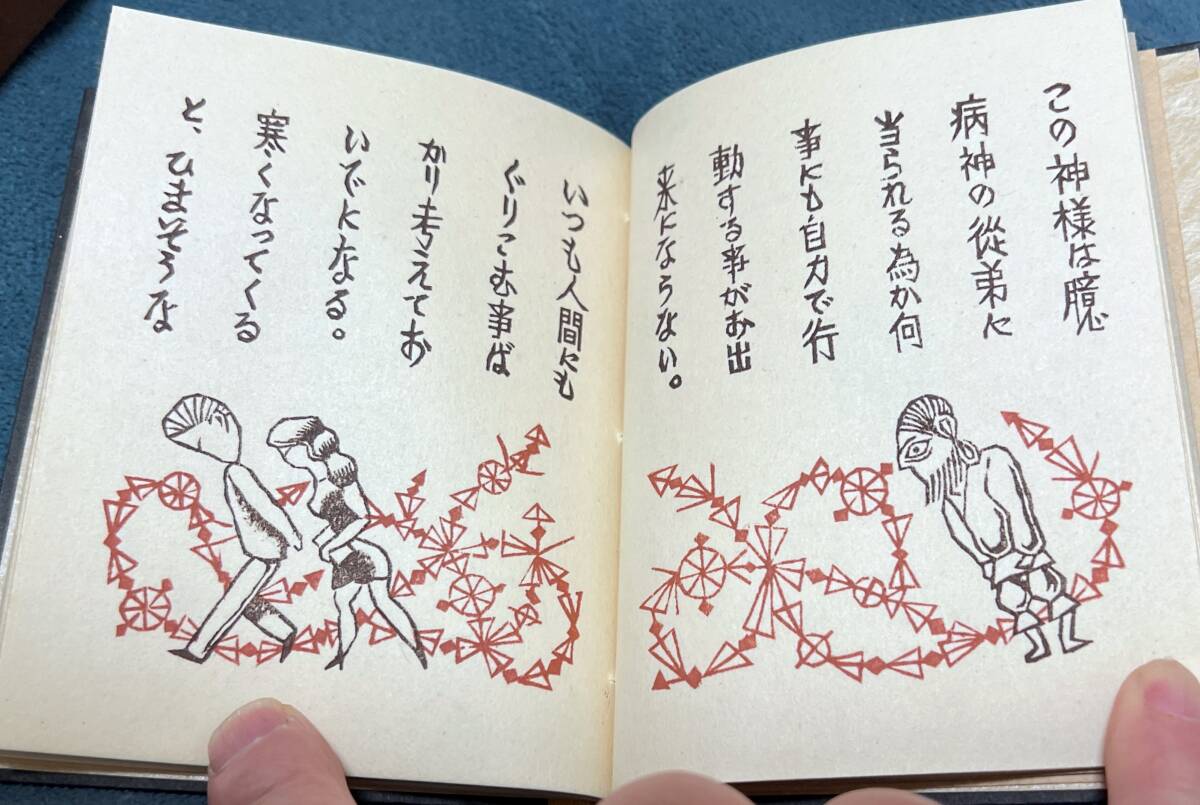 この神様は臆
病神の従弟に
当られる為か何
事にも自力で行
動する事がお出
来にならない。
いつも人間にも
ぐりこむ事ば
かり考えてお
いでになる。
寒くなってくる
と、ひまそうな